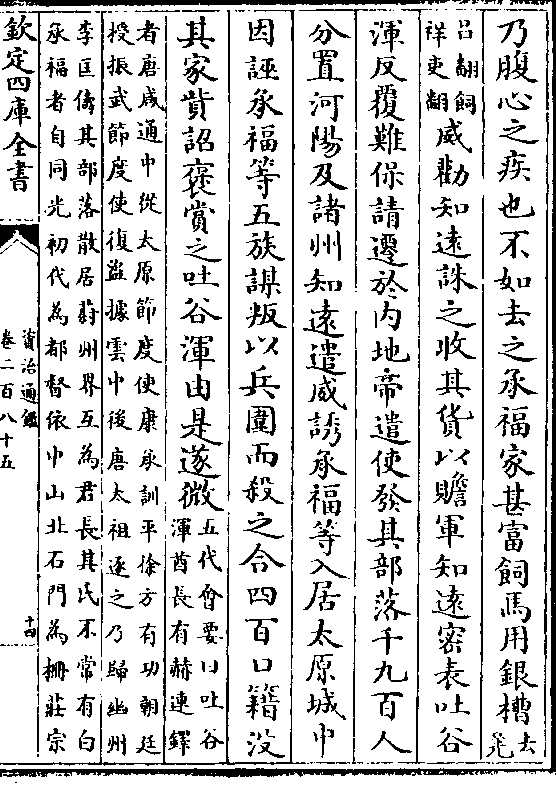 乃腹心之疾也不如去之承福家甚富飼馬用銀槽去羌
呂翻飼
祥吏翻
威勸知遠誅之收其貨以贍軍知遠密表吐谷
渾反覆難保請遷於内地帝遣使發其部落千九百人
分置河陽及諸州知遠遣威誘承福等入居太原城中
因誣承福等五族謀叛以兵圍而殺之合四百口籍没
其家貲詔褒賞之吐谷渾由是遂微
五代會要曰吐谷
渾酋長有赫連鐸
者唐咸通中從太原節度使康承訓平徐方有功朝廷
授振武節度使復盜據雲中後唐太祖逐之乃歸幽州
李匡儔其部落散居蔚州界互為君長其氏不常有白
承福者自同光初代為都督依中山北石門為柵莊宗
欽定四庫全書
資治通鑑
卷二百八十五
十四